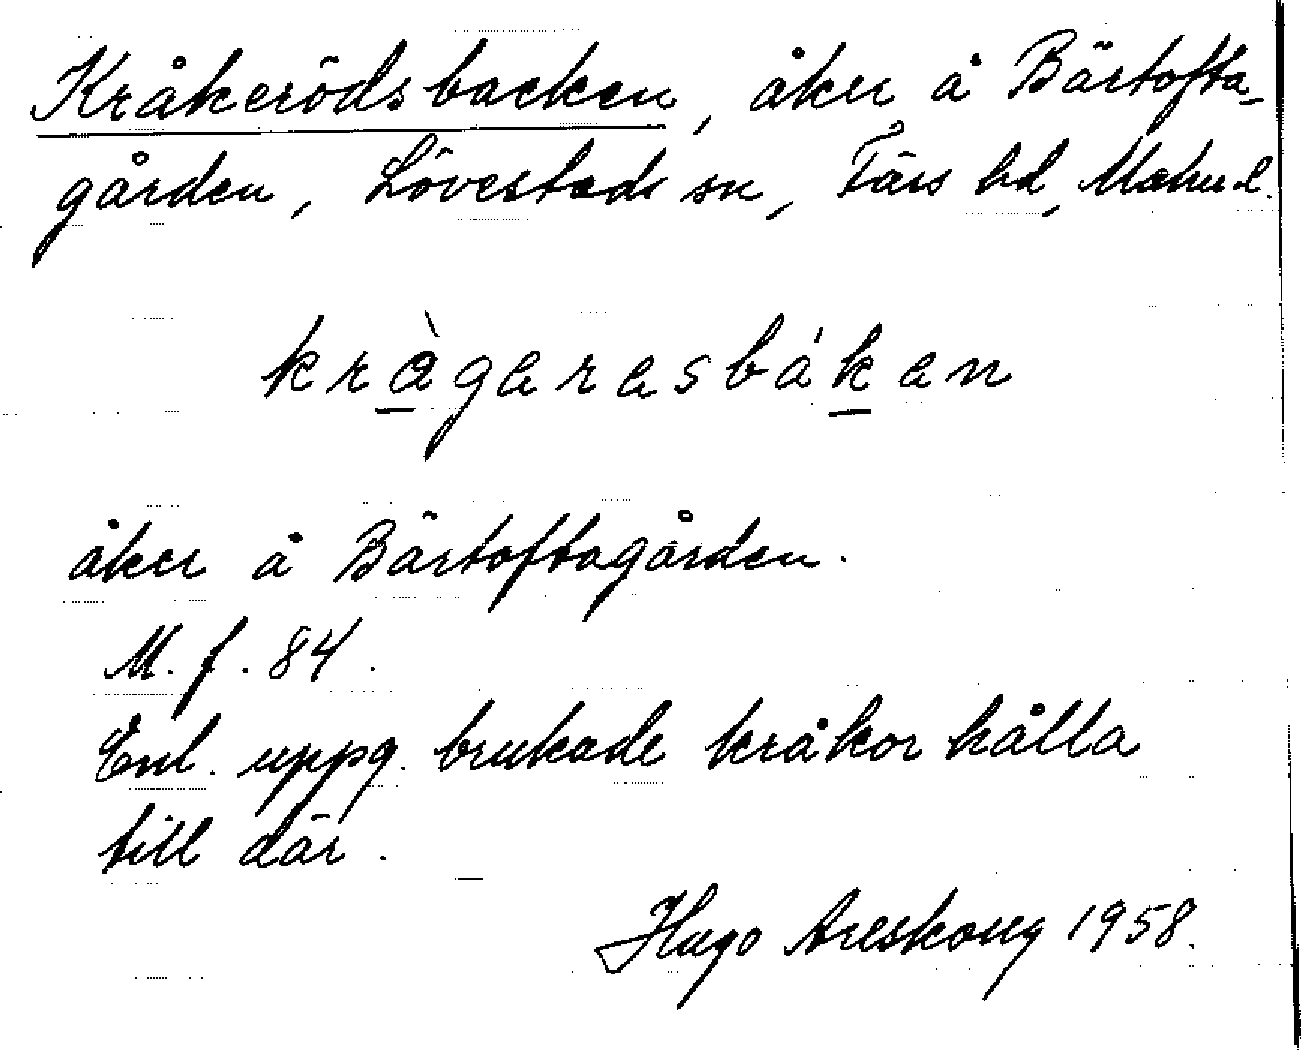 Kråkerödsbacken, åker å Bärtofta-
gården, Lövestads sn, Färs hd, Malmh.l.
kràgarasbákan
åker å Bärtoftagården.
M.f. 84.
Enl. uppg. brukade kråkor hålla
till där.
Hugo Areskoug 1958.